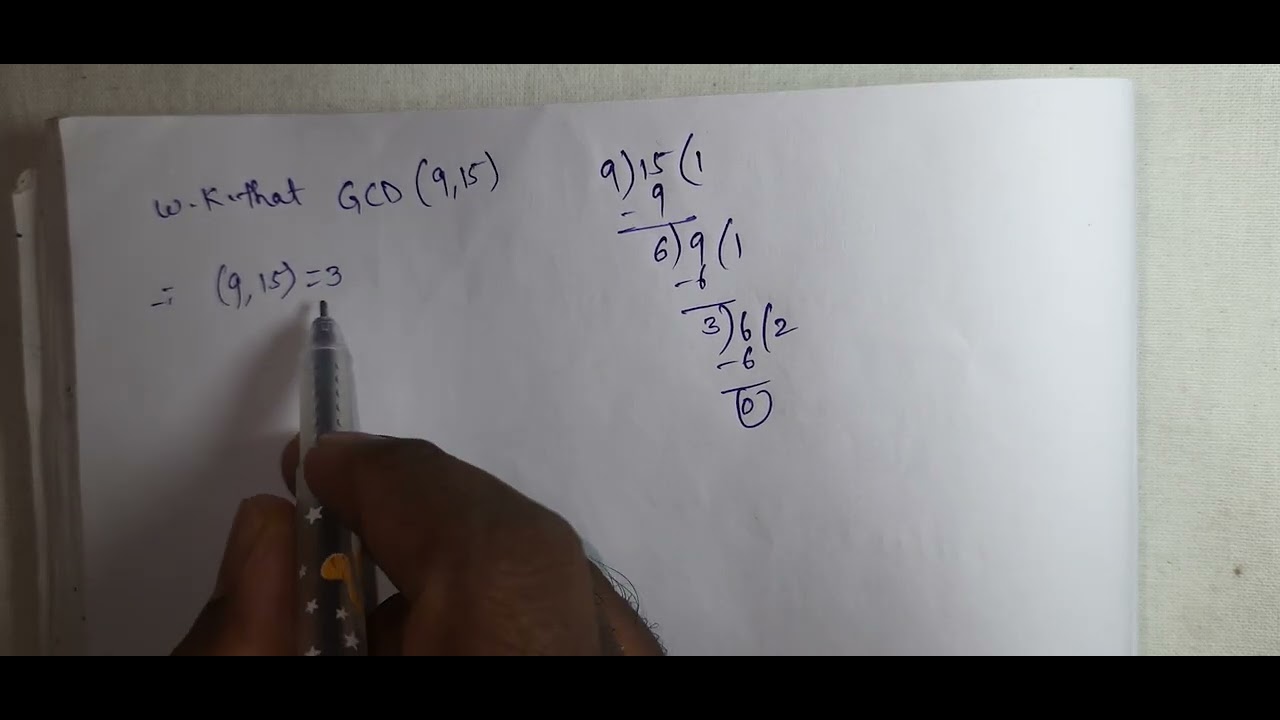 w.k.that GCD (9,15)
∴ (9,15) = 3
9) 15 (1
- 9
6) 9 (1
- 6
3) 6 (2
- 6
0